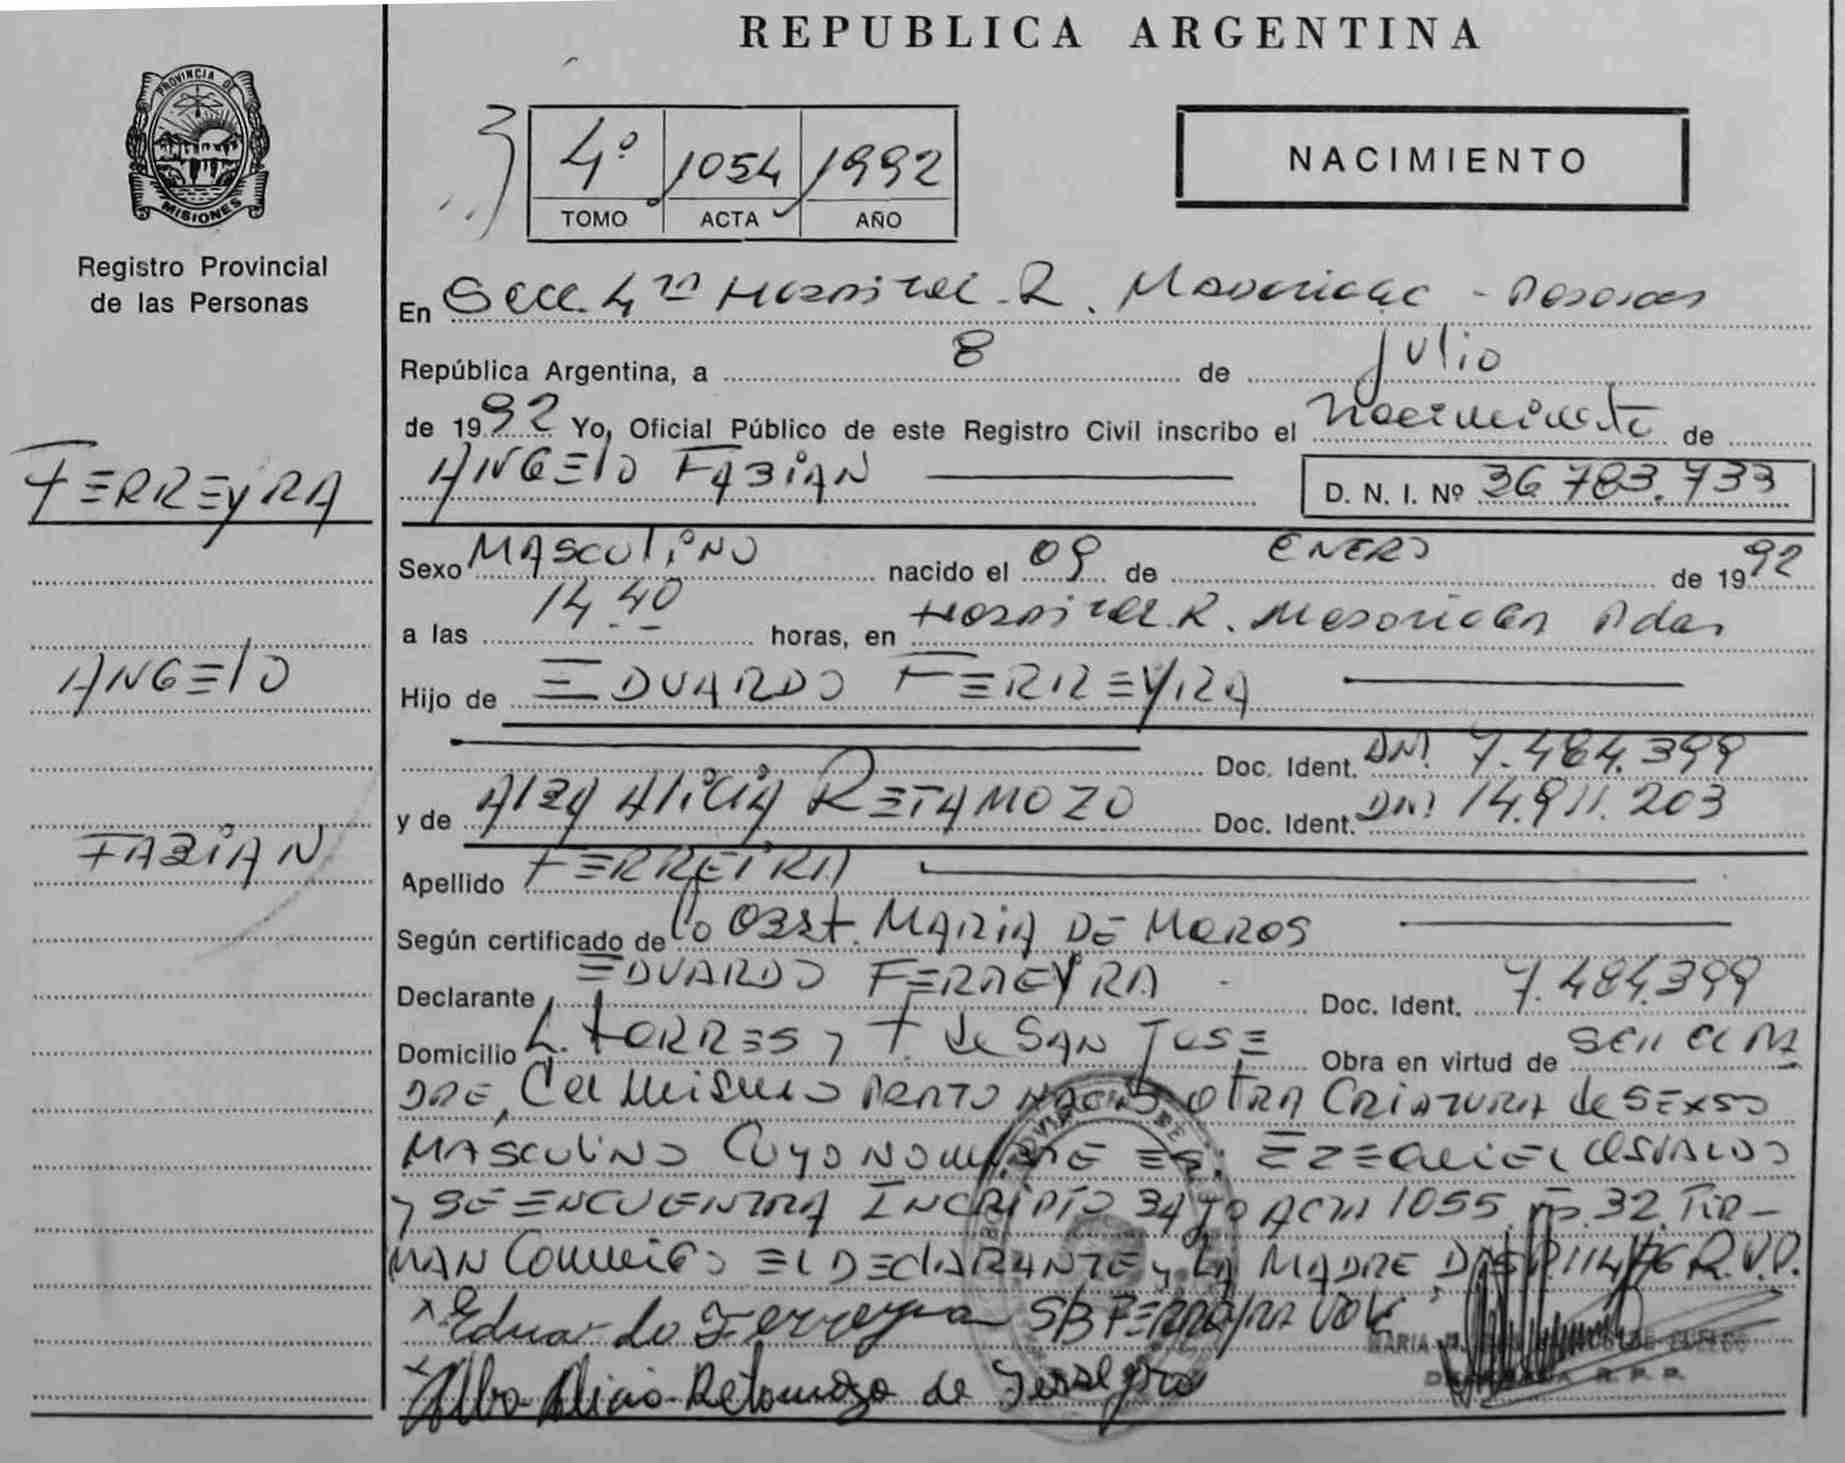 REPUBLICA ARGENTINA
PROVINCIA DE
MISIONES
Registro Provincial
de las Personas
4º 1054 1992
TOMO ACTA AÑO
NACIMIENTO
En Secc. 4ta Hospital R. Madariaga - Posadas
República Argentina, a 8 de Julio
de 1992 Yo, Oficial Público de este Registro Civil inscribo el Nacimiento de
ANGElO FABIAN
D. N. I. Nº 36 783.733
FERREyRA
ANGElO
FABIAN
Sexo MASCUliNO nacido el 09 de ENERO de 1992
a las 14.40 horas, en Hospital R. Madariaga Pdas
Hijo de EDUARDO FERREYRA
Doc. Ident. DNI 7.484.399
y de AlBA AliCIA RETAMOZO Doc. Ident. DNI 14.911.203
Apellido FERREIRA
Según certificado de lo OBST. MARIA DE MOROS
Declarante EDUARDO FERREYRA Doc. Ident. 7.484.399
Domicilio L. TORRES y T. de SAN JOSE Obra en virtud de SER El PA
DRE, En el Mismo PARTO NACIO OTRA CRIATURA de SEXSO
MASCUliNO CUYO NOMBRE ES: EZEQUIEL OSVALDO
y SE ENCUENTRA INCRIPTO BAJO ACTA 1055 Fo. 32. FIR-
MAN CONMIGO El DEClARANTE y LA MADRE R.V.D.
x Eduardo Ferreyra S/B FERREYRA VDL
x Alba Alicia Retamozo de Ferreyra